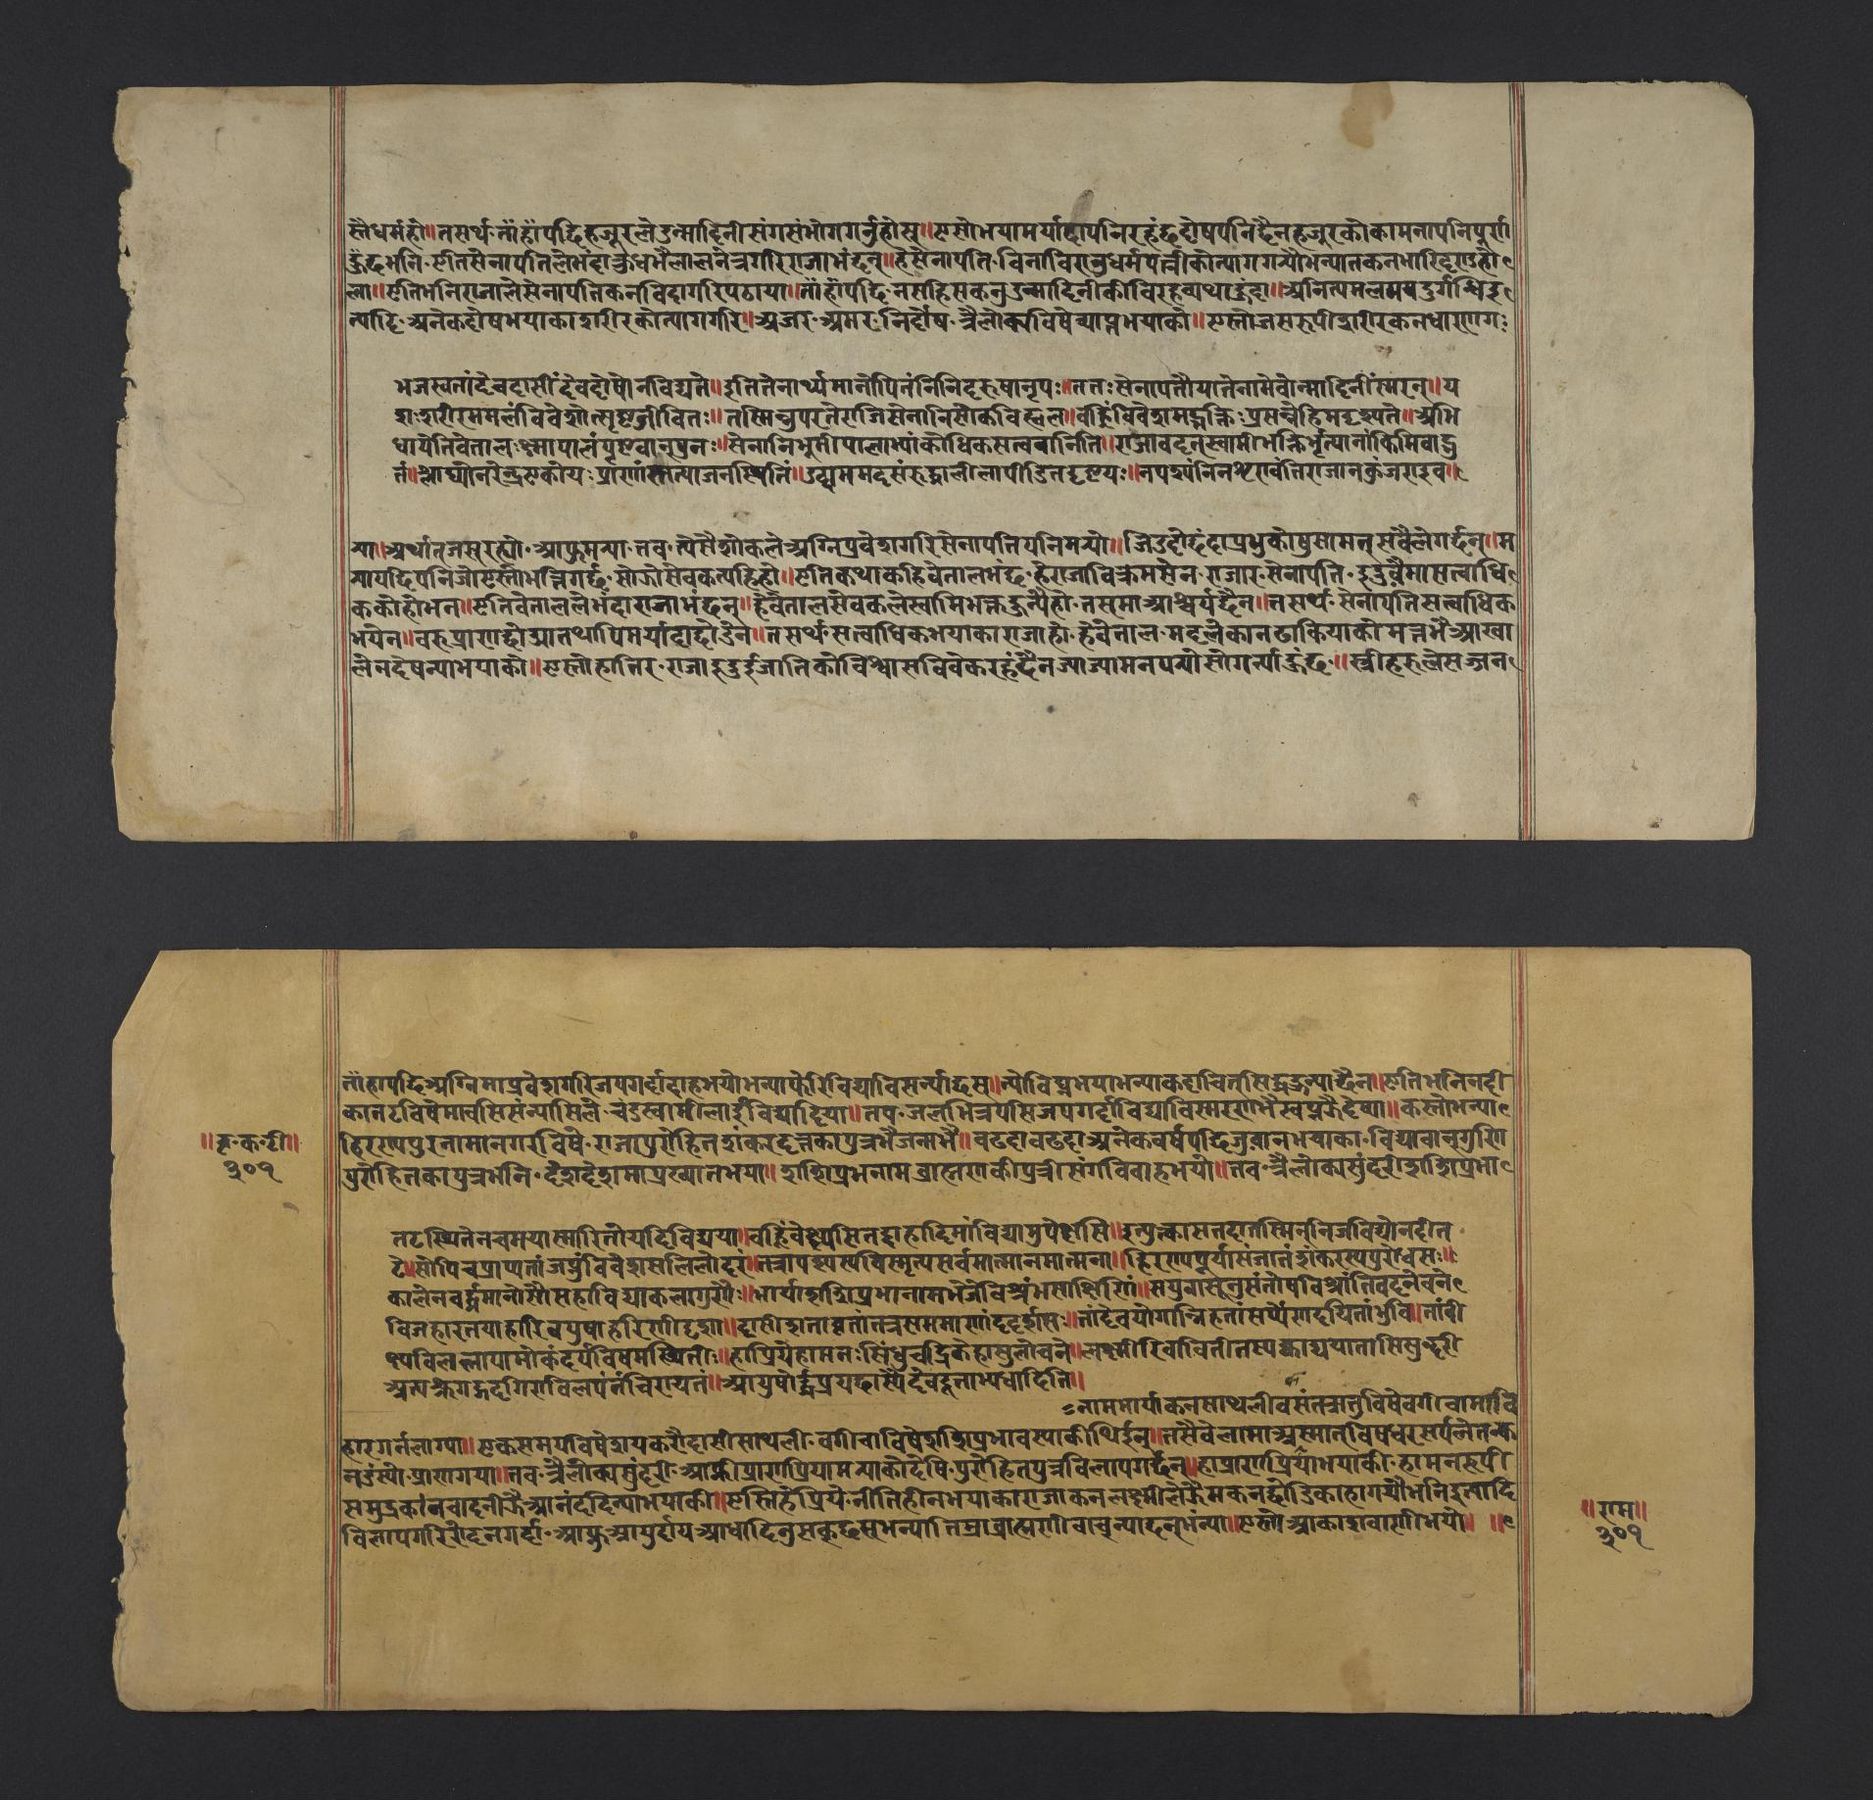 स्तैधर्महो॥तसर्थ·ताँहाँपछिहजुरलेउन्मादिनीसंगसंभोगगर्नुहोस्॥एसोभयामर्यादापनिरहंछदोषपनिछैनहजुरकोकामनापनिपुर्णा
हुंछभनि·एतिसेनापतिलेभंदाक्रोधभैलालनेत्रगरिराजाभंछन्॥हेसेनापति·विनाविराउधर्मपत्नीकोत्यागगर्यौभन्यापातकनभारिदंण्डहोए
ला॥एतिभनिराजालेसेनापतिकनविदागरिपठाया॥ताँहाँपछि·नसहिसकनुउन्मादिनीकोविरहव्यथाहुंदा॥अनित्यमलमयदुर्गंधि
त्यादि·अनेकदोषभयाकाशरीरकोत्यागगरि॥अजर·अमर·निर्दोष·त्रैलोक्यविषेव्याप्तभयाको॥एस्तोजसरूपीशरीरकनधारणग·
भजस्वतांदेवदासींदेवदोषोनविद्यते॥इतितेनार्थ्यमानोपितंनिनिदरुषानृपः॥ततःसेनापतौयातेतामेवोन्मादिनींस्मरन्॥य
शःशरीरममलंविवेशोत्सृष्टजीवितः॥तस्मिन्नुपरतेराज्ञिसेनानिसोकविह्वल॥वह्निंविवेशमद्भक्तिःप्रसन्नैहिमदृश्यते॥अभि
धायेतिवेताल·क्ष्मापालंपृष्टवान्पुनः॥सेनानिभुमीपालाभ्यांकोधिकसत्ववानिति॥राजावदत्स्वामीभक्तिर्भृत्यानांकिमिवाद्भु
तं॥श्लाघ्योनरेन्द्रएकोय·प्राणांस्तत्याजनस्थितिं॥उत्कृममदसंरुद्धालीलापीडितदृष्टयः॥नपश्यंतिनशृण्वंतिराजानकुंजराइव॥
र्‍या॥अर्थात्जसुरह्यो·आफुमर्‍या·तव·त्पसैशोकलेअग्निप्रवेशगरिसेनापतिपनिमर्यो॥जिउदोछंदाप्रभुकोषुसामत्सवैलेगर्दछन्॥म
र्‍यापछिपनिजोएस्तोभक्तिगर्छ·सोऊोसेवकत्यहिहो॥एतिकथाकहिवेतालभंछ·हेराजाविक्रमसेन·राजार·सेनापति·इदुवैमासत्वाधि
ककोहोभन॥एतिवेताललेभंदाराजाभंछन्॥हेवेतालसेवकलेस्वामिभक्तहुन्यैहो·तसमाआश्चर्यछैन॥तसर्थ·सेनापतिसत्वाधिक
भयेन॥वरुप्राणछोआतथापिमर्यादाछोडेन॥तसर्थसत्वाधिकभयाकाराजाहो·हेवेताल·मदलेकानढाकियाकोमत्तभैआखा
लेनदेषन्याभयाको॥एस्तोहात्तिर·राजाइदुईजातिकोविश्वासविवेकरहंदैनज्याज्यामनपर्योसोगर्न्याहुंछ॥स्त्रीहरुलेसज्जन
ताँहापछिअग्निमाप्रवेशगरिजपगर्दादाहभयोभन्याफेरिविद्याविसर्न्याछस्॥त्योविघ्नभयाभन्याकदाचित्सिद्धहुन्याछैन॥एतिभनिनदी
कातटविषेमावसिसंन्यासिले·चंडस्वामीलाईविद्यादिया॥तप·जलभित्रपसिजपगर्दाविद्याविस्मरणभैस्वप्नझैदेष्या॥कस्तोभन्या
हिरण्यपुरनामानगरविषे·राजापुरोहितशंकरदत्तकापुत्रभैजन्मभै॥बढदाबढदाअनेकवर्षपछिजुवानभयाका·विद्यावान्गुणि
पुरोहितकापुत्रभनि·देशदेशमाप्रख्यातभया॥शशिप्रभनामब्राह्मणकीपुत्रीसंगविवाहभयो॥तव·त्रैलोक्यसुंदरीशशिप्रभा
तटस्थितेनचमयास्मारितीयदिविद्यया॥वह्निंवेक्ष्यसितद्दाहादिमांविद्यामुपैष्यसि॥इत्युक्त्कासतदातस्मिन्निजविद्योनदीत
टे॥सोपिचप्राप्यतांजप्तुंविवेशसलिलोदरं॥तत्रापश्यत्यविस्मृत्यसर्वमात्मानमात्मना॥हिरण्यपुर्यांसंजातंशंकरस्यपुरोधसः॥
कालेनवर्द्धमानोसौसहाविद्याकलागुणैः॥भार्यांशशिप्रभानामभेजेविश्रंभसाक्षिणीं॥
विजहारतयाहारिवपुषाहरिणीदृशा॥दासीशतावृतांतत्रसममाणांददर्शसः॥तांदैवयोगान्निहतांसर्पेणदयितांभुवि॥
क्ष्यविललापामोकंदर्पविषमस्थितीः॥हाप्रियेहामनःसिंधुचंद्रिकेहासुलोचने॥लक्ष्मीरिवाविनीतस्यक्काद्ययातासिसुन्दरी
गद्गदगिराविलपंतंचिरायतं॥आयुषोर्द्धंप्रयछास्यैदेवदूताभ्यधादिति॥
नामभार्याकनसाथलीवसंतऋतुविषेवगीचामावि
हारगर्नलाग्या॥एकसमयविषेशयकरौदासीसाथली·वगीचाविषेशशिप्रभावस्याकीथिईन्॥तसैवेलामाअस्मात्विषधरसर्पलेतन्क
नडस्यो·प्राणगया॥तव·त्रैलोक्यसुंदरी·आफ्नीप्राणप्रियामर्‍याकोदेषि·पुरोहितपुत्रविलापगर्दछन्॥हाप्राणप्रियाभयाकी·हामनरूपी
समुद्रकांनचादनीझैआनंददिन्याभयाकी॥एस्निहेप्रिये·नीतिहीनभयाकाराजाकनलक्ष्मीलेझैमकनछोडिकाहागयौभनिइत्यादि
विलापगरिरोदनगर्दा·आफुआयुर्दायआधादिनुसकछसभन्यातिम्राब्राह्मणीवाचन्याछन्भन्या॥एस्तोआकाशवाणीभयो॥
॥वृ·क·टी॥
३०१
॥राम॥
३०१